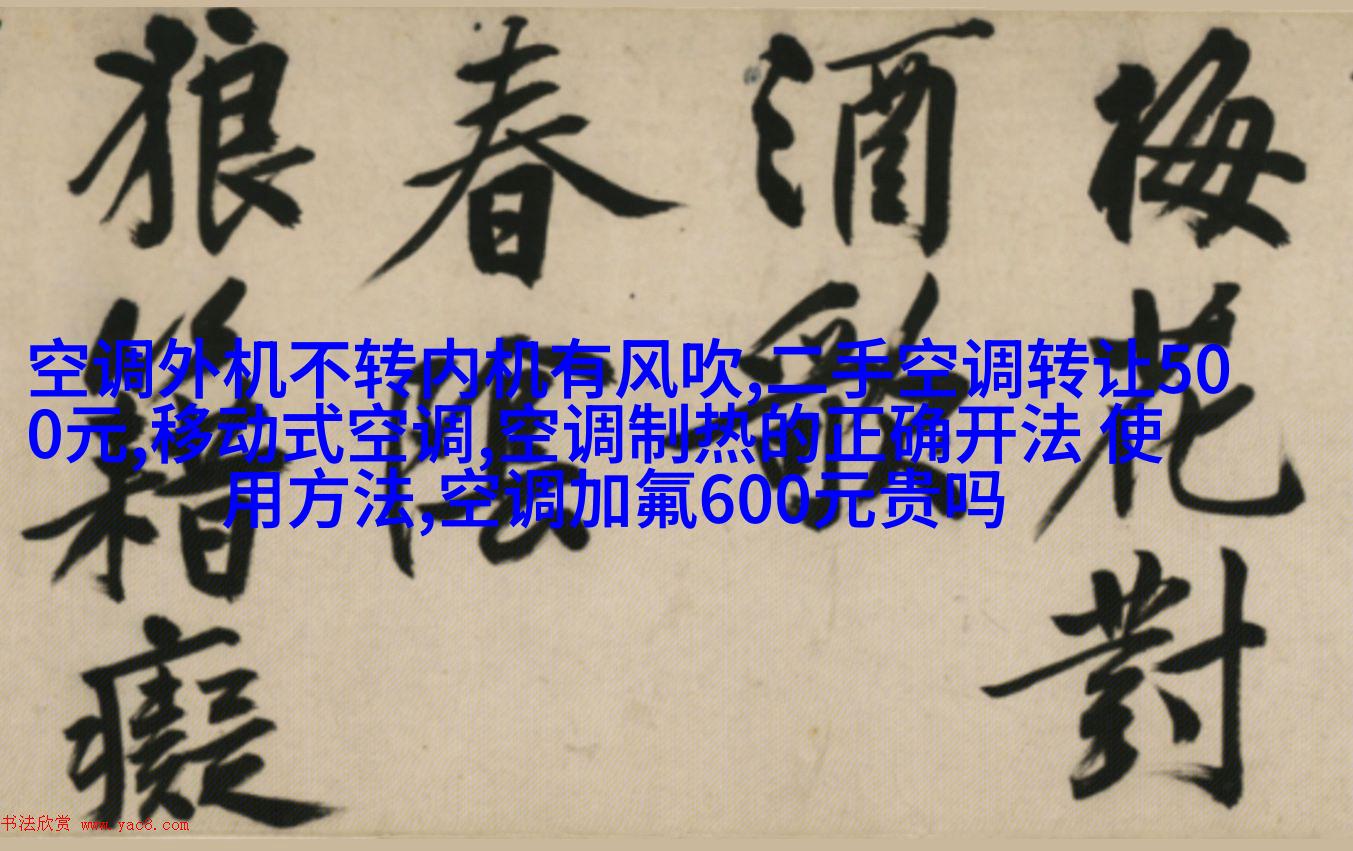 梅花對
酒
春陰
狼籍癡
空调外机不转内机有风吹,二手空调转让50
0元,移动式空调,空调制热的正确开法 使
用方法,空调加氟600元贵吗
书法欣赏 www.yac8.com